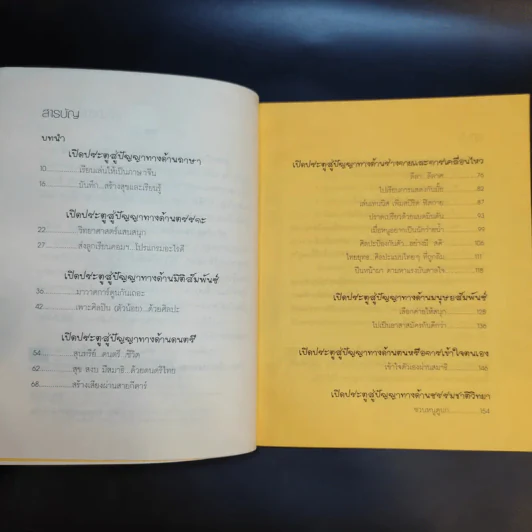 สารบัญ
บทนำ
เปิดประตูสู่ปัญญาทางด้านภาษา
10 เรียนเล่นให้เป็นภาษาจีน
16 บันทึก...สร้างสุขและเรียนรู้
เปิดประตูสู่ปัญญาทางด้านตรรกะ
22 วิทยาศาสตร์แสนสนุก
27 ส่งลูกเรียนคอมฯ...โปรแกรมอะไรดี
เปิดประตูสู่ปัญญาทางด้านมิติสัมพันธ์
36 มาวาดการ์ตูนกันเถอะ
42 เพาะศิลปิน (ตัวน้อย)...ด้วยศิลปะ
เปิดประตูสู่ปัญญาทางด้านดนตรี
54 สุนทรีย์...ดนตรี...ชีวิต
62 สุข สงบ มีสมาธิ...ด้วยดนตรีไทย
68 สร้างเสียงผ่านสายกีตาร์
เปิดประตูสู่ปัญญาทางด้านร่างกายและการเคลื่อนไหว
ลีลา...ลีลาศ 76
ไปเรียนการแสดงกันมั้ย 82
เล่นเทนนิส เพิ่มสปิริต ชีวิต 87
ปราดเปรียวด้วยแบดมินตัน 93
เมื่อหนูอยากเป็นนักว่ายน้ำ 99
ศิลปะป้องกันตัว...อย่างมี สติ 106
ไทยยุทธ...ศิลปะแบบไทยๆ ที่ถูกลืม 111
ปีนหน้าผา ตามหาแรงบันดาลใจ 118
เปิดประตูสู่ปัญญาทางด้านมนุษยสัมพันธ์
เลือกค่ายให้สนุก 128
ไปเป็นอาสาสมัครกันดีกว่า 136
เปิดประตูสู่ปัญญาทางด้านตนหรือการเข้าใจตนเอง
เข้าใจตัวเองผ่านสมาธิ 146
เปิดประตูสู่ปัญญาทางด้านธรรมชาติวิทยา
ชวนหนูดูนก 154